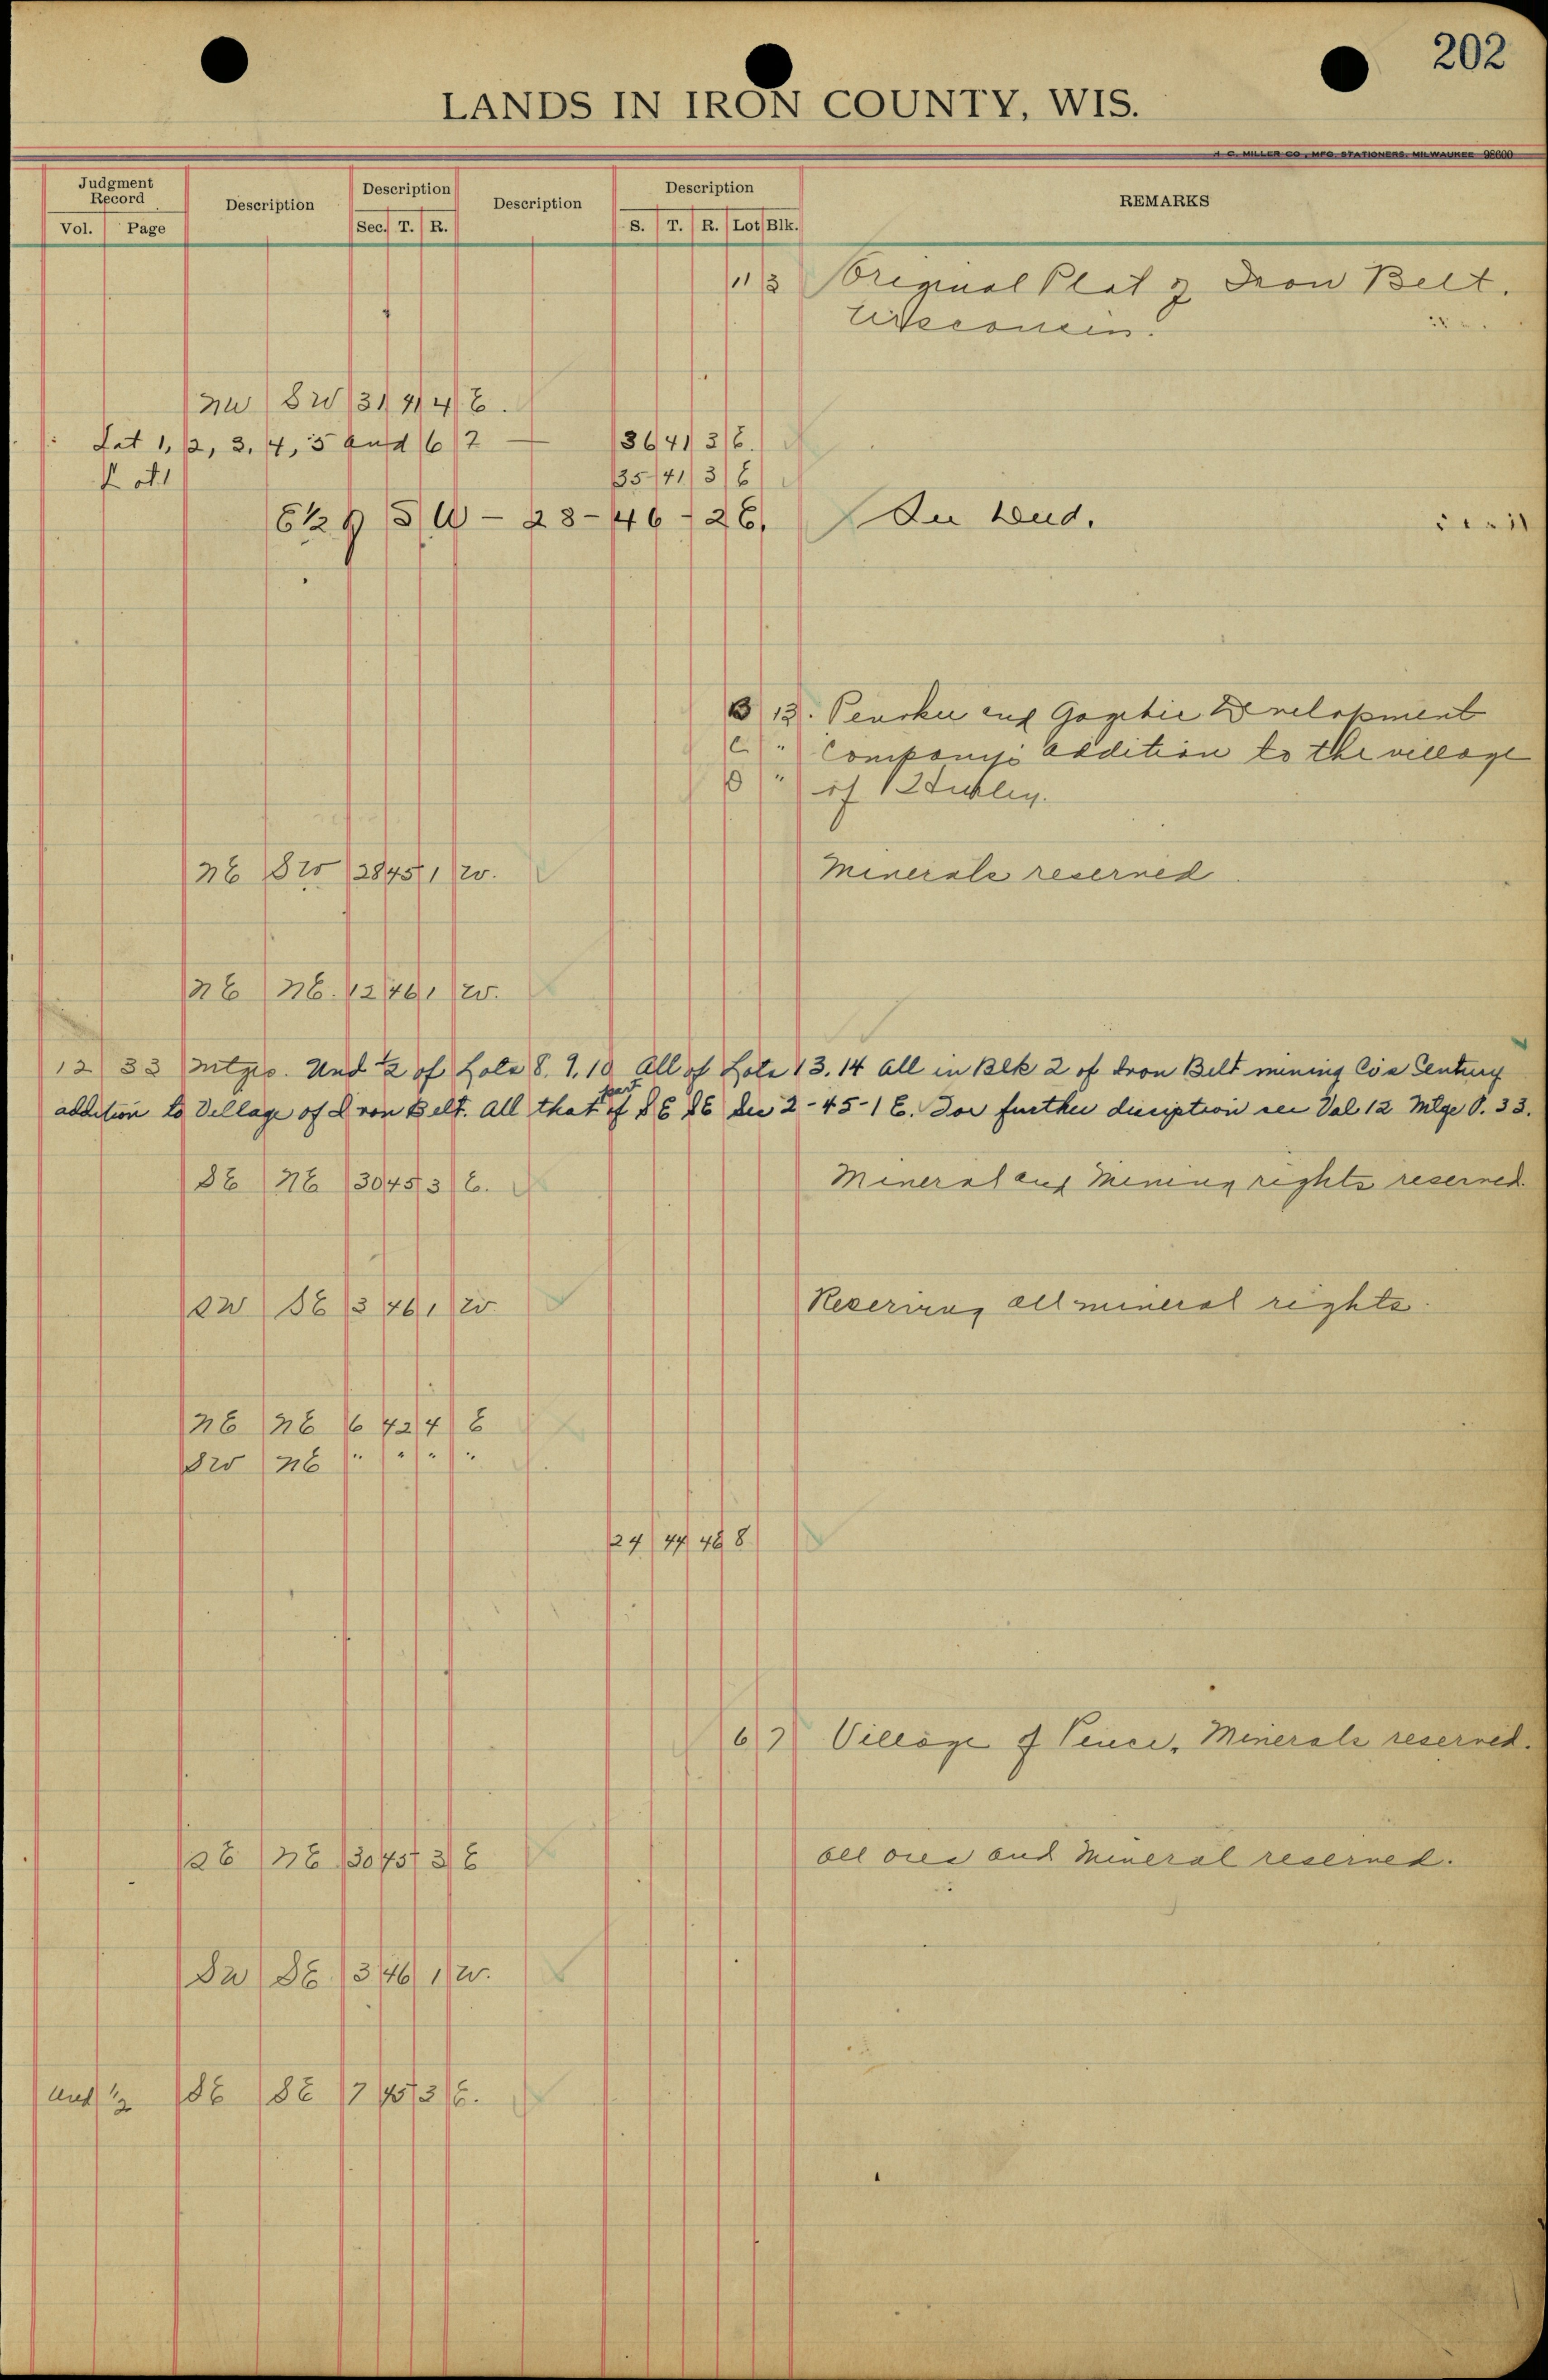 202
LANDS IN IRON COUNTY, WIS.
H. C. MILLER CO., MFG. STATIONERS, MILWAUKEE 98600
Judgment Record Description Description Description Description REMARKS
Vol. Page Sec. T. R. S. T. R. Lot Blk.
11 3 Original Plat of Iron Belt.
Wisconsin.
NW SW 31 41 4 E.
Lot 1, 2, 3, 4, 5 and 6 7 — 36 41 3 E.
Lot 1 35 41 3 E
E½ of SW - 28-46-2E. See Deed.
B 13. Penokee and Gogebic Development
C " Company's addition to the village
D " of Hurley.
NE SW 28 45 1 W. Minerals reserved
NE NE. 12 46 1 W.
12 33 Mtges. Und ½ of Lots 8. 9. 10 All of Lots 13. 14 all in Blk 2 of Iron Belt mining Co's Century
addition to Village of Iron Belt. All that part of SE SE Sec 2-45-1 E. For further discription see Vol 12 Mtge P. 33.
SE NE 30 45 3 E. Mineral and Mining rights reserved.
SW SE 3 46 1 W Reserving all mineral rights.
NE NE 6 42 4 E
SW NE " " " "
24 44 46 8
6 7 Village of Pence, Minerals reserved.
SE NE 30 45 3 E all ores and mineral reserved.
SW SE 3 46 1 W.
Und ½ SE SE 7 45 3 E.